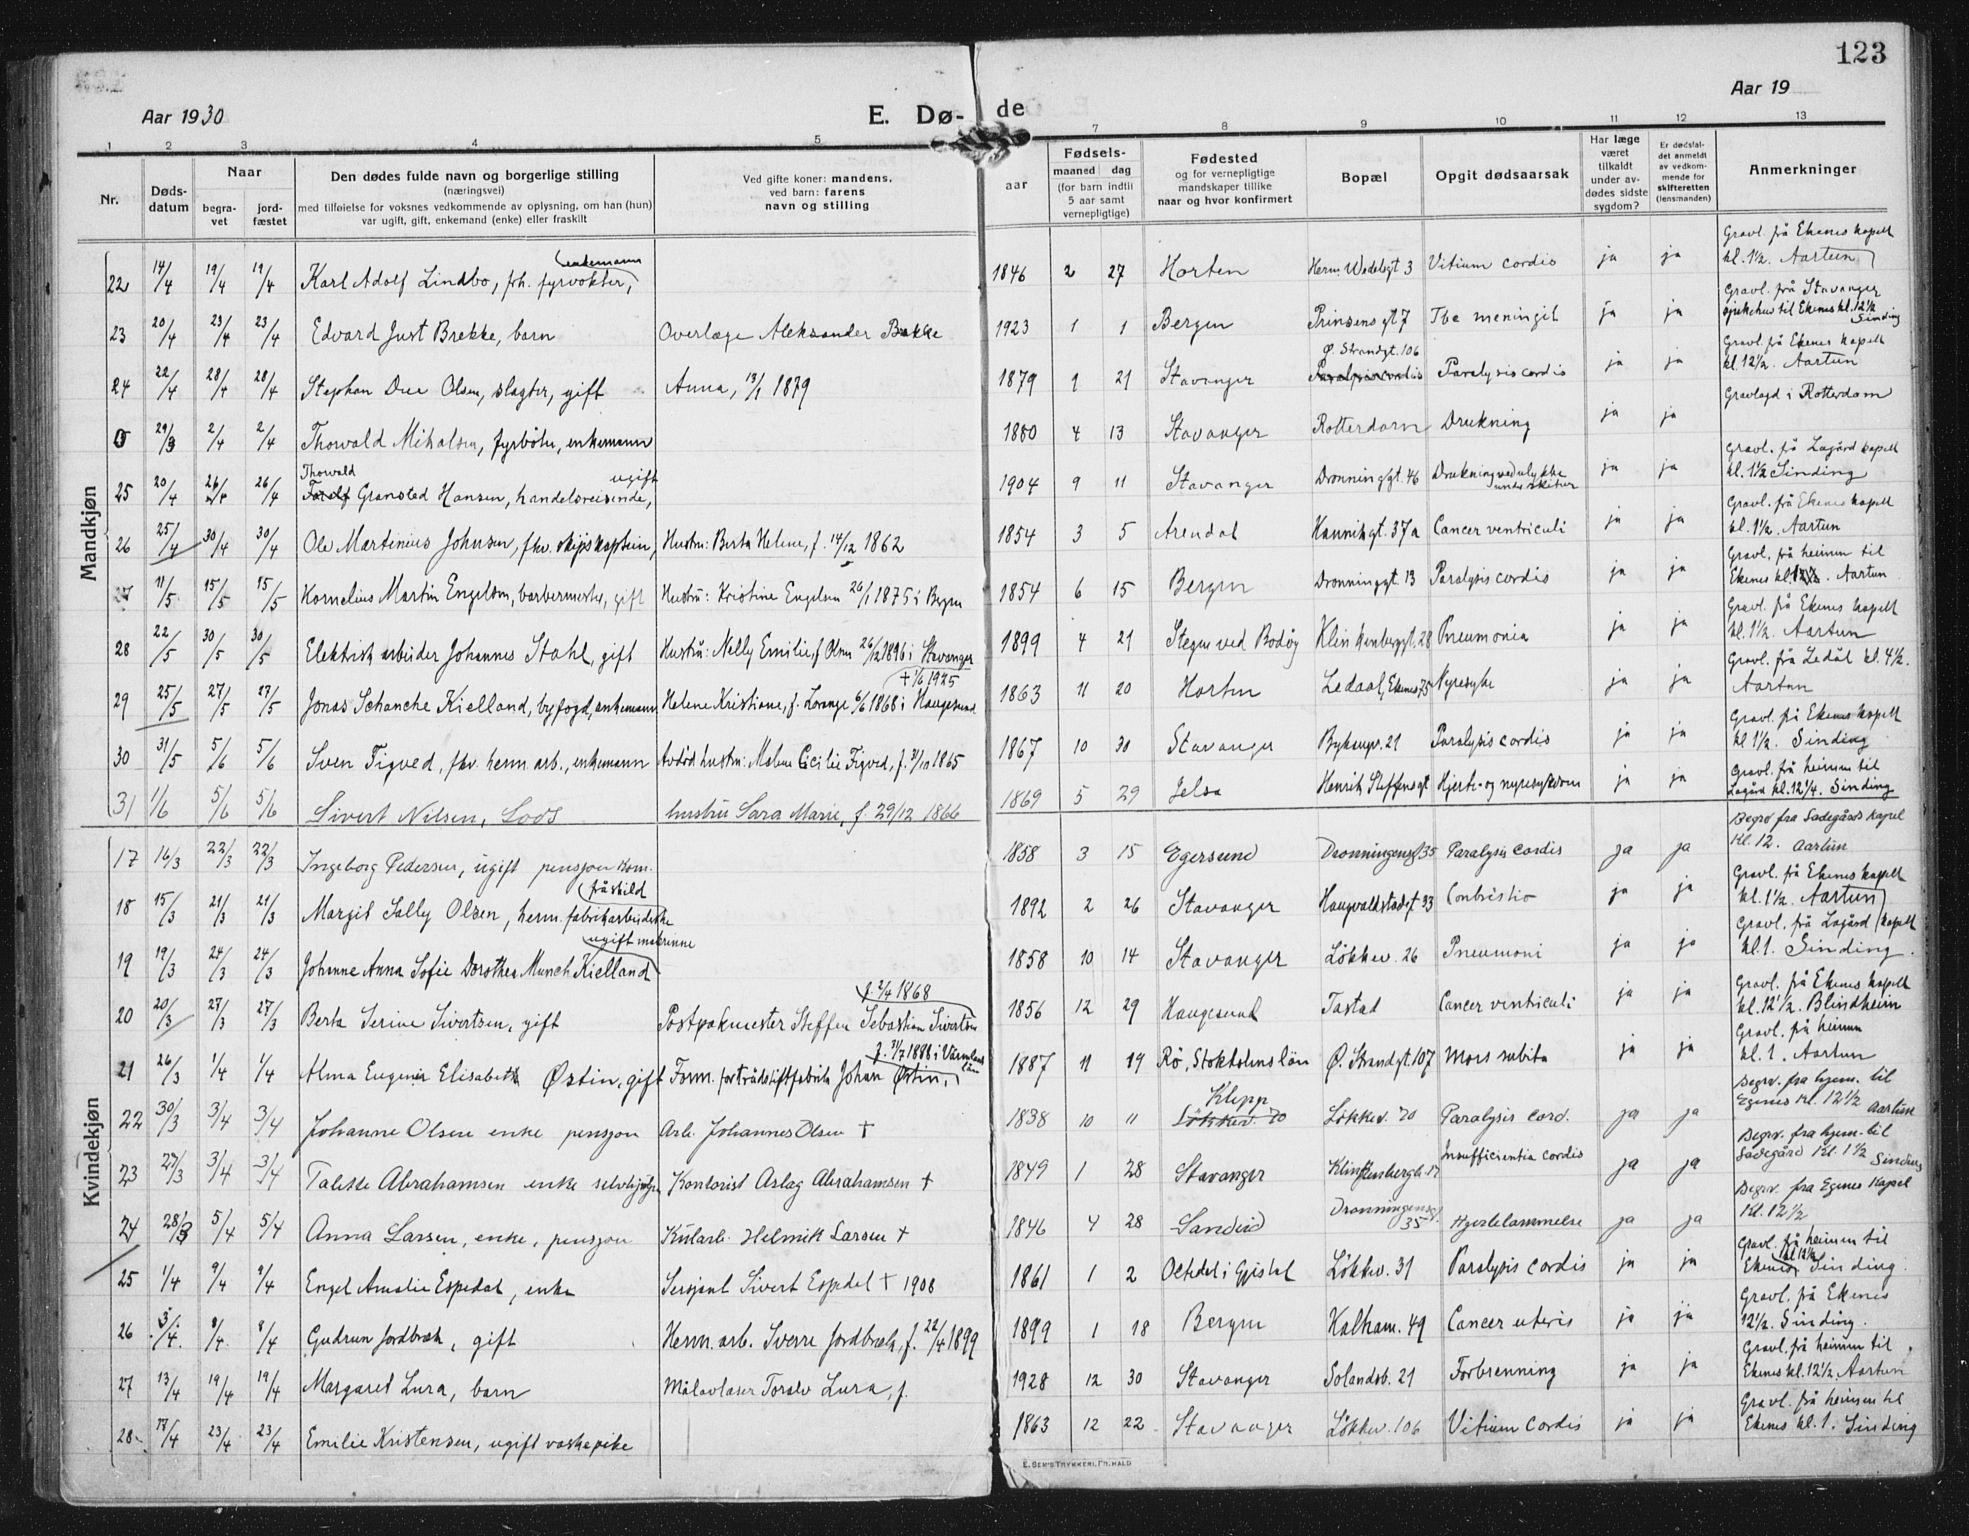 123
Aar 1930
E. Dø- de
Aar 19
1 2 3 4 5 7 8 9 10 11 12 13
Nr.
Døds-datum
Naar
begra-vet
jord-fæstet
Den dødes fulde navn og borgerlige stilling
(næringsvei)
med tilføielse for voksnes vedkommende av oplysning, om han (hun)
var ugift, gift, enkemand (enke) eller fraskilt
Ved gifte koner: mandens,
ved barn: farens
navn og stilling
aar
Fødsels-
maaned dag
(for barn indtil
5 aar samt
vernepligtige)
Fødested
og for vernepligtige
mandskaper tillike
naar og hvor konfirmert
Bopæl
Opgit dødsaarsak
Har læge
været
tilkaldt
under av-
dødes sidste
sygdom?
Er dødsfal-
det anmeldt
av vedkom-
mende for
skifteretten
(lensmanden)
Anmerkninger
Mandkjøn
22 14/4 19/4 19/4 Karl Adolf Lindbo, frh. fyrvokter, enkemann 1846 2 27 Horten Herm. Wedelsgt 3 Vitium cordis ja ja Gravl. frå Ekenes kapell kl. 1½. Aartun
23 20/4 23/4 23/4 Edvard Just Brekke, barn Overlæge Aleksander Brekke 1923 1 1 Bergen Prinsens gt 7 Tbc meningit ja ja Gravl. frå Stavanger sjukehus til Ekenes kl. 12½ Sinding
24 22/4 28/4 28/4 Stephan Due Olsen, slagter, gift Anna, 13/1 1879 1879 9 21 Stavanger Ø. Strandgt. 106 Paralysis cordis ja ja Gravl. frå Ekenes kapell kl. 12½. Aartun
0 29/3 2/4 2/4 Thorvald Mikalsen, fyrbøter, enkemann 1880 4 13 Stavanger Rotterdam Drukning ja ja Gravlagd i Rotterdam
25 20/4 26/4 26/4 Thorvald Gransted Hansen, handelsreisende, ugift 1904 9 11 Stavanger Dronningsgt. 46 Drukning ved ulykke ja ja Gravl. frå Lagård kapell kl. 1½ Sinding
26 25/4 30/4 30/4 Ole Martinius Johnsen, fhv. skipskaptein, Hustru: Berta Helene, f. 14/12 1862 1854 3 5 Arendal Hanniksgt. 37a Cancer ventriculi ja ja Gravl. frå Ekenes kapell kl. 1½. Aartun
27 11/5 15/5 15/5 Kornelius Martin Engelsen, barbermester, gift Hustru: Kristine Engelsen 26/1 1875 i Bergen 1854 6 15 Bergen Dronninggt. 13 Paralysis cordis ja ja Gravl. frå heimen til Ekenes kl. Aartun
28 22/5 30/5 30/5 Elektrisk arbeider Johannes Stahl, gift Hustru: Nelly Emilie, f Olsen 26/12 1896 i Stavanger 1899 4 21 Stegen ved Bodø Klinkenbergt. 28 Pneumonia ja ja Gravl. frå Ekenes kapell kl. 1½. Aartun
29 25/5 27/5 27/5 Jonas Schanche Kielland, byfogd, enkemann Helene Kristiane, f. Lorange 6/6 1868 i Haugesund + 1/6 1925 1863 11 20 Horten Ledaal, Ekenes 75 Nyresyke ja ja Gravl. frå Ledål kl. 4½. Aartun
30 31/5 5/6 5/6 Sven Tigved, fhv. herm. arb., enkemann Avdød hustru: Malene Cicilie Tigved, f. 31/10 1865 1867 10 30 Stavanger Byhaugv. 21 Paralysis cordis ja ja Gravl. frå Ekenes kapell kl 1½. Sinding
31 1/6 5/6 5/6 Sivert Nilsen, Lods hustru Sara Marie, f. 29/12 1866 1869 5 29 Jelsa Henrik Steffensgt Hjerte- og nyresykdom ja ja Gravl. frå heimen til Lagård kl. 12¼. Sinding
Kvindekjøn
17 16/3 22/3 22/3 Ingeborg Pedersen, ugift pensjon kom. 1858 3 15 Egersund Dronningensgt 35 Paralysis cordis ja ja Begrv fra Ladegårds kapel Kl. 12. Aartun
18 15/3 21/3 21/3 Margit Sally Olsen, herm. fabrikarbeiderske fråskild 1892 2 26 Stavanger Haugvaldstadgt 33 Conbustio ja ja Gravl. frå Ekenes kapell kl. 1½. Aartun
19 19/3 24/3 24/3 Johanne Anna Sofie Dorothea Munch Kielland ugift malerinne 1858 10 14 Stavanger Løkkev. 26 Pneumoni ja ja Gravl. frå Lagård kapell kl. 1. Sinding.
20 20/3 27/3 27/3 Berta Serine Sivertsen, gift Postpakmester Steffen Sebastian Sivertsen f. 2/4 1868 1856 12 29 Haugesund Tastad Cancer ventriculi ja ja Gravl. frå Ekenes kapell kl. 12½. Blindheim
21 26/3 1/4 1/4 Alma Eugenia Elisabeth Østin, gift Form. for trådstiftfabrik Johan Østin, f. 31/7 1888 i Värmlands län 1887 11 19 Rö, Stokholms län Ø. Strandgt. 107 Mors subita ja ja Gravl. frå heimen kl. 1. Aartun
22 30/3 3/4 3/4 Johanne Olsen enke pensjon Arb. Johannes Olsen † 1838 10 11 Klepp Løkkev. 70 Løkkev. 70 Paralysis cord. ja ja Begrv. fra hjem. til Egenes kl. 12½ Aartun
23 27/3 3/4 3/4 Talette Abrahamsen enke Kontorist Aslag Abrahamsen † 1849 1 28 Stavanger Klinkenbergt. 17 Insufficientia cordis ja ja Begrv. fra hjem. til Ladegård Kl. 1½ Sinding
24 28/3 5/4 5/4 Anna Larsen, enke, pensjon Kularb. Helmik Larsen † 1846 4 28 Sandeid Dronningensgt. 35 Hjertelammelse ja ja Begrv. fra Egenes Kapel Kl. 12½
25 1/4 9/4 9/4 Engel Amalie Espedal, enke Sersjant Sivert Espedal † 1908 1861 1 2 Oltedal i Gjestal Løkkev. 31 Paralysis cordis ja ja Gravl. frå heimen til Ekenes kl 12½ Sinding.
26 3/4. 8/4. 8/4 Gudrun Jordbræk, gift Herm. arb. Sverre Jordbræk, f. 22/4 1899 1899 1 18 Bergen Kalham. 49 Cancer uteris ja ja Gravl. frå Ekenes 12½. Sinding.
27 13/4 19/4 19/4 Margaret Lura, barn Målavlaser Toralv Lura, f. 1928 12 30 Stavanger Solandsb. 21 Forbrenning ja ja Gravl. frå heimen til Ekenes kl. 12½. Aartun
28 17/4 23/4 23/4 Emilie Kristensen, ugift vaskepike 1863 12 22 Stavanger Løkkev. 106 Vitium cordis ja ja Gravl. frå heimen til Ekenes kl. 1. Sinding
E. SEM'S TRYKKERI, FR. HALD